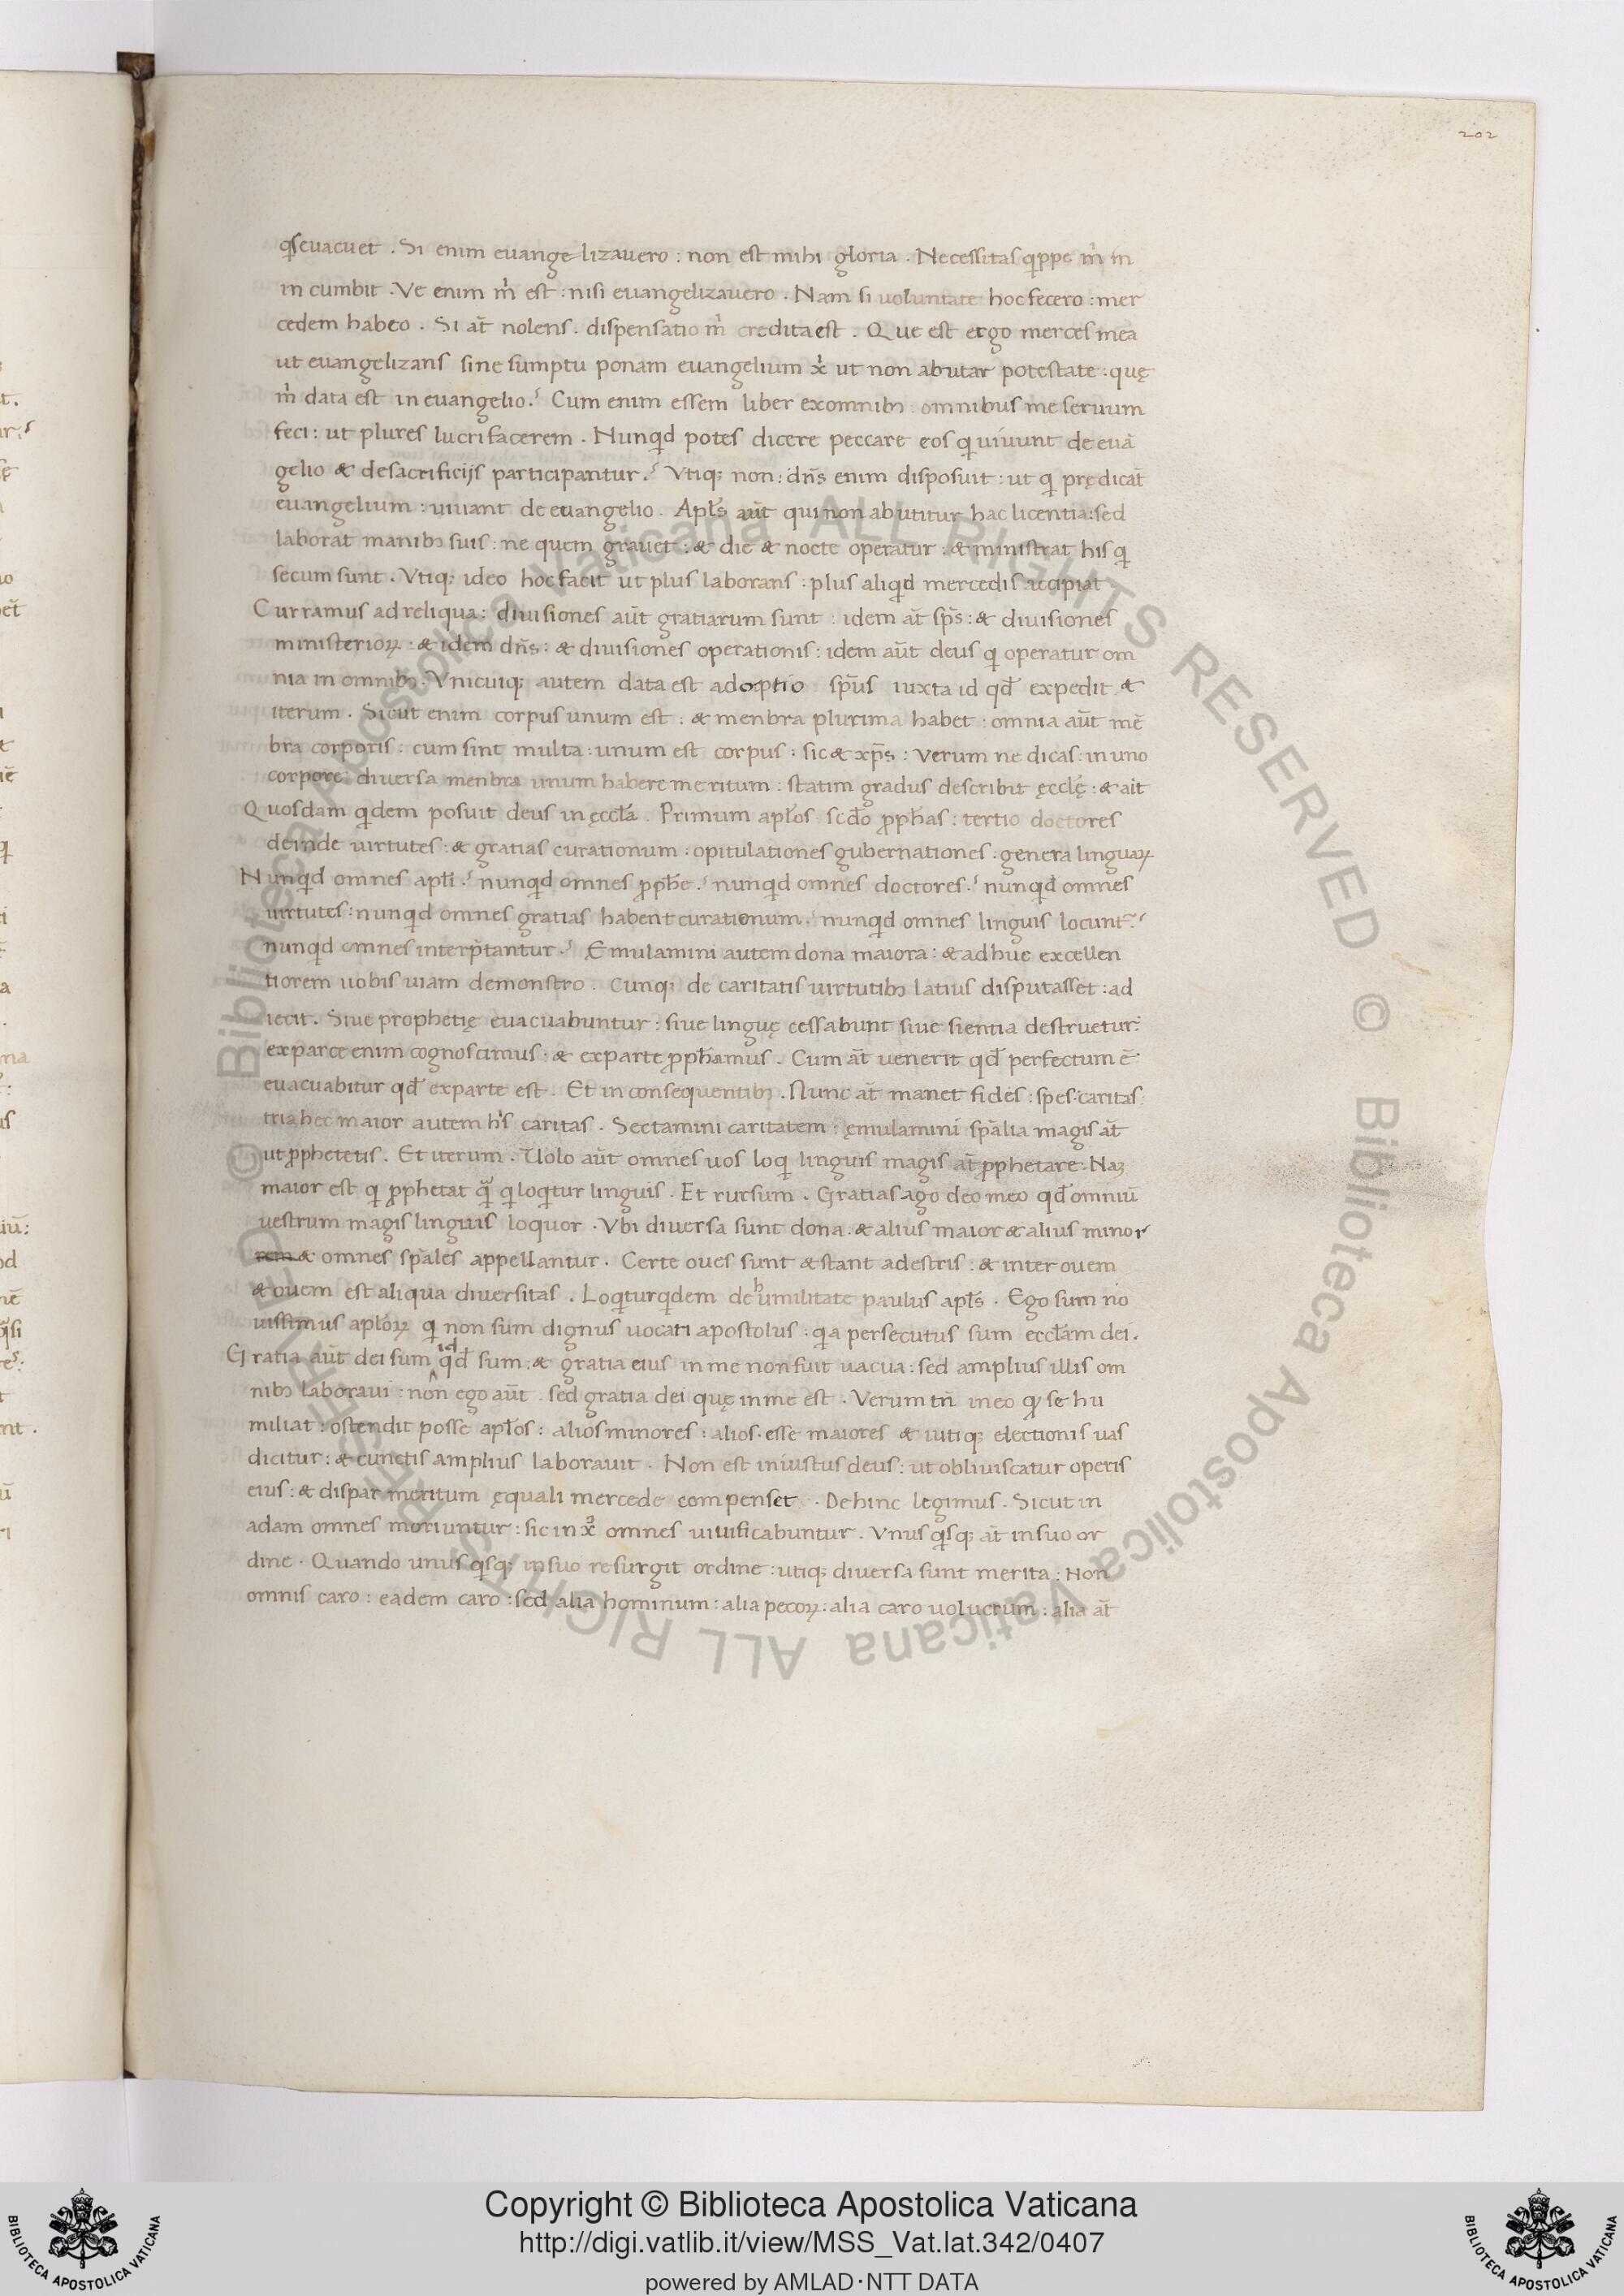 202
qͥs evacuet . Si enim euangelizauero : non est mihi gloria . Necessitas qͥppe m̍ in
in cumbit . Ve enim m̍ est : nisi euangelizauero . Nam si uoluntate hoc fecero : mer
cedem habeo . Si aūt nolens . dispensatio m̍ credita est . Que est ergo merces mea
ut euangelizans sine sumptu ponam euangelium xͥ ut non abutar potestate : quę
m̍ data est in euangelio ? Cum enim essem liber ex omnibꝫ omnibus me seruum
feci : ut plures lucrifacerem . Nunqͥd potes dicere peccare eos qͥ uiuunt de euā
gelio & de sacrificijs participantur ? Vtiqꝫ non : dn̄s enim disposuit : ut qͥ prędicāt
euangelium : uiuant de euangelio . Apl̄s aūt qui non abutitur hac licentia : sed
laborat manibꝫ suis : ne quem grauet : & die & nocte operatur : & ministrat his qͥ
secum sunt . Vtiqꝫ ideo hoc facit ut plus laborans : plus aliqͥd mercedis accipiat
Curramus ad reliqua : diuisiones aūt gratiarum sunt : idem aūt sp̄s : & diuisiones
ministeriorꝝ : & idem dn̄s : & diuisiones operationis : idem aūt deus qͥ operatur om
nia in omnibꝫ . Vnicuiqꝫ autem data est adoptio sp̄us iuxta id qd̄ expedit &
iterum . Sicut enim corpus unum est : & menbra plurima habet : omnia aūt mē
bra corporis : cum sint multa : unum est corpus : sic & xp̄s : verum ne dicas : in uno
corpore diuersa menbra unum habere meritum : statim gradus describit ęcclę̄ : & ait
Quosdam qͥdem posuit deus in ęccl̄a . Primum apl̄os scd̄o ꝓph̄as : tertio doctores
deinde uirtutes : & gratias curationum : opitulationes gubernationes : genera linguaꝝ
Nunqͥd omnes apl̄i ? nunqͥd omnes ꝓph̄e ? nunqͥd omnes doctores ? nunqͥd omnes
uirtutes : nunqͥd omnes gratias habent curationum ? nunqͥd omnes linguis locunt̄ ?
nunqͥd omnes interp̄tantur ? Emulamini autem dona maiora : & adhuc excellen
tiorem uobis uiam demonstro . Cunqꝫ de caritatis uirtutibꝫ latius disputasset : ad
iecit . Siue prophetię euacuabuntur : siue linguę cessabunt siue sientia destruetur :
ex parce enim cognoscimus : & ex parte ꝓph̄amus . Cum aūt uenerit qd̄ perfectum ē :
euacuabitur qd̄ ex parte est . Et in consequentibꝫ . Nunc aūt manet fides : spes : caritas
tria hec maior autem h̍s caritas . Sectamini caritatem : ęmulamini sp̄alia magis aūt
ut ꝓphetetis . Et iterum . Uolo aūt omnes uos loqͥ linguis magis aūt ꝓphetare . Naꝫ
maior est qͥ ꝓphetat qᷓ qͥ loqͥtur linguis . Et rursum . Gratias ago deo meo qd̄ omniū
uestrum magis linguis loquor . Vbi diuersa sunt dona . & alius maior & alius minor
rem & omnes sp̄ales appellantur . Certe oues sunt & stant adestris : & inter ouem
& ouem est aliqua diuersitas . Loqͥtur qͥdem de humilitate paulus apl̄s . Ego sum no
uissimus apl̄oꝝ qͥ non sum dignus uocari apostolus : qͥa persecutus sum eccl̄am dei .
Gratia aūt dei sum id qd̄ sum : & gratia eius in me non fuit uacua : sed amplius illis om
nibꝫ laboraui : non ego aūt . sed gratia dei quę in me est . Verum tn̄ in eo qͥ se hu
miliat : ostendit posse apl̄os : alios minores : alios . esse maiores & iutiqꝫ electionis uas
dicitur : & cunctis amplius laborauit . Non est iniustus deus : ut obliuiscatur operis
eius : & dispar meritum ęquali mercede compenset . Dehinc legimus . Sicut in
adam omnes moriuntur : sic in xͦ omnes uiuificabuntur . Vnus qͥsqꝫ aūt in suo or
dine . Quando unus qͥsqꝫ in suo resurgit ordine : utiqꝫ diuersa sunt merita : Non
omnis caro : eadem caro : sed alia hominum : alia pecoꝝ : alia caro uolucrum : alia aūt
© Biblioteca Apostolica Vaticana ALL RIGHTS RESERVED © Biblioteca Apostolica Vaticana ALL RIGHTS RESERVED
Copyright © Biblioteca Apostolica Vaticana
http://digi.vatlib.it/view/MSS_Vat.lat.342/0407
powered by AMLAD·NTT DATA
BIBLIOTECA APOSTOLICA VATICANA
BIBLIOTECA APOSTOLICA VATICANA